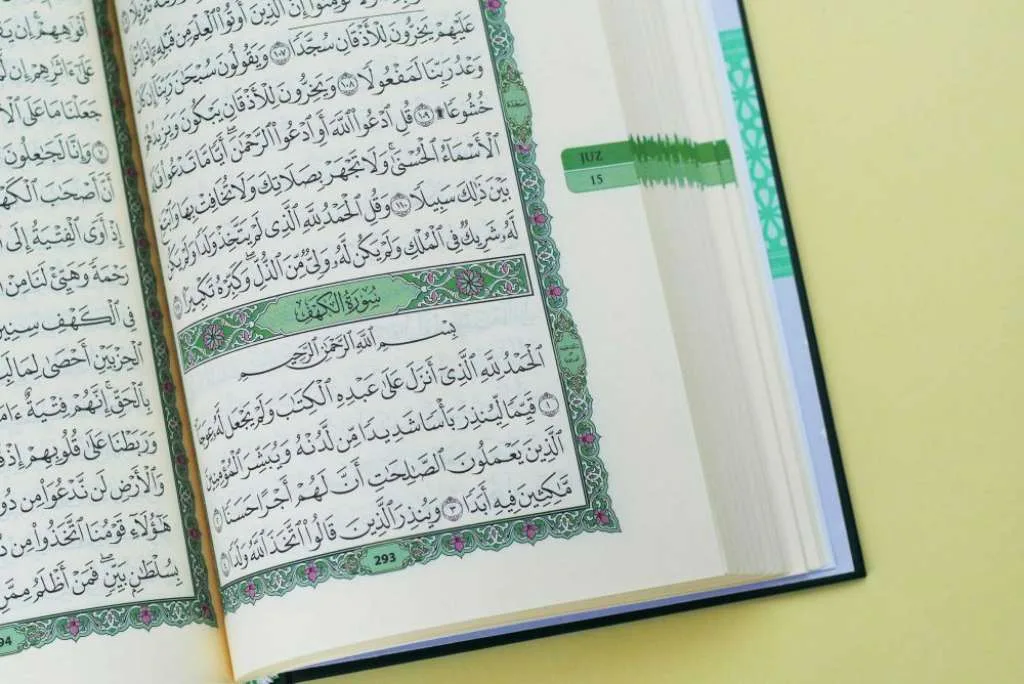 إِنَّ ٱلَّذِينَ أُوتُوا۟ ٱلْعِلْمَ مِن قَبْلِهِۦٓ إِذَا يُتْلَىٰ
عَلَيْهِمْ يَخِرُّونَ لِلْأَذْقَانِ سُجَّدًا ١٠٧ وَيَقُولُونَ سُبْحَٰنَ رَبِّنَآ إِن كَانَ
وَعْدُ رَبِّنَا لَمَفْعُولًا ١٠٨ وَيَخِرُّونَ لِلْأَذْقَانِ يَبْكُونَ وَيَزِيدُهُمْ
خُشُوعًا ۩ ١٠٩ قُلِ ٱدْعُوا۟ ٱللَّهَ أَوِ ٱدْعُوا۟ ٱلرَّحْمَٰنَ ۖ أَيًّا مَّا تَدْعُوا۟ فَلَهُ
ٱلْأَسْمَآءُ ٱلْحُسْنَىٰ ۚ وَلَا تَجْهَرْ بِصَلَاتِكَ وَلَا تُخَافِتْ بِهَا وَٱبْتَغِ
بَيْنَ ذَٰلِكَ سَبِيلًا ١١٠ وَقُلِ ٱلْحَمْدُ لِلَّهِ ٱلَّذِى لَمْ يَتَّخِذْ وَلَدًا وَلَمْ يَكُن
لَّهُۥ شَرِيكٌ فِى ٱلْمُلْكِ وَلَمْ يَكُن لَّهُۥ وَلِىٌّ مِّنَ ٱلذُّلِّ ۖ وَكَبِّرْهُ تَكْبِيرًۢا ١١١
سُورَةُ ٱلْكَهْفِ
بِسْمِ ٱللَّهِ ٱلرَّحْمَٰنِ ٱلرَّحِيمِ
ٱلْحَمْدُ لِلَّهِ ٱلَّذِىٓ أَنزَلَ عَلَىٰ عَبْدِهِ ٱلْكِتَٰبَ وَلَمْ يَجْعَل لَّهُۥ عِوَجَا
١ قَيِّمًا لِّيُنذِرَ بَأْسًا شَدِيدًا مِّن لَّدُنْهُ وَيُبَشِّرَ ٱلْمُؤْمِنِينَ
ٱلَّذِينَ يَعْمَلُونَ ٱلصَّٰلِحَٰتِ أَنَّ لَهُمْ أَجْرًا حَسَنًا ٢
مَّٰكِثِينَ فِيهِ أَبَدًا ٣ وَيُنذِرَ ٱلَّذِينَ قَالُوا۟ ٱتَّخَذَ ٱللَّهُ وَلَدًا ٤
293
سَجْدَة
JUZ
15
أَفْوَٰهِهِمْ ۚ إِن
عَلَىٰٓ ءَاثَٰرِهِمْ إِن
جَعَلْنَا مَا عَلَى
٧ وَإِنَّا لَجَٰعِلُونَ
أَنَّ أَصْحَٰبَ ٱلْكَهْفِ
إِذْ أَوَى ٱلْفِتْيَةُ إِلَى
رَحْمَةً وَهَيِّئْ لَنَا مِنْ
فِى ٱلْكَهْفِ سِنِينَ
ٱلْحِزْبَيْنِ أَحْصَىٰ لِمَا
بِٱلْحَقِّ ۚ إِنَّهُمْ فِتْيَةٌ
وَرَبَطْنَا عَلَىٰ قُلُوبِهِمْ إِذْ
وَٱلْأَرْضِ لَن نَّدْعُوَا۟ مِن
هَٰٓؤُلَآءِ قَوْمُنَا ٱتَّخَذُوا۟ مِن
بِسُلْطَٰنٍۭ بَيِّنٍ ۖ فَمَنْ أَظْلَمُ مِمَّنِ
94